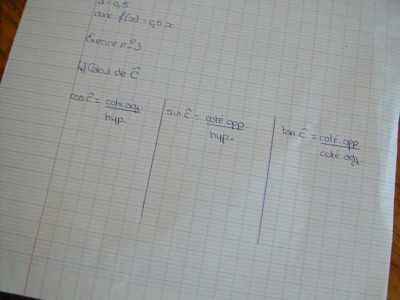 a = 0,6
donc f(x) = 0,6 x
Exercice n°3
1) Calcul de Ĉ
cos Ĉ = coté adj
hyp.
sin Ĉ = coté opp.
hyp.
tan Ĉ = coté opp
coté adj